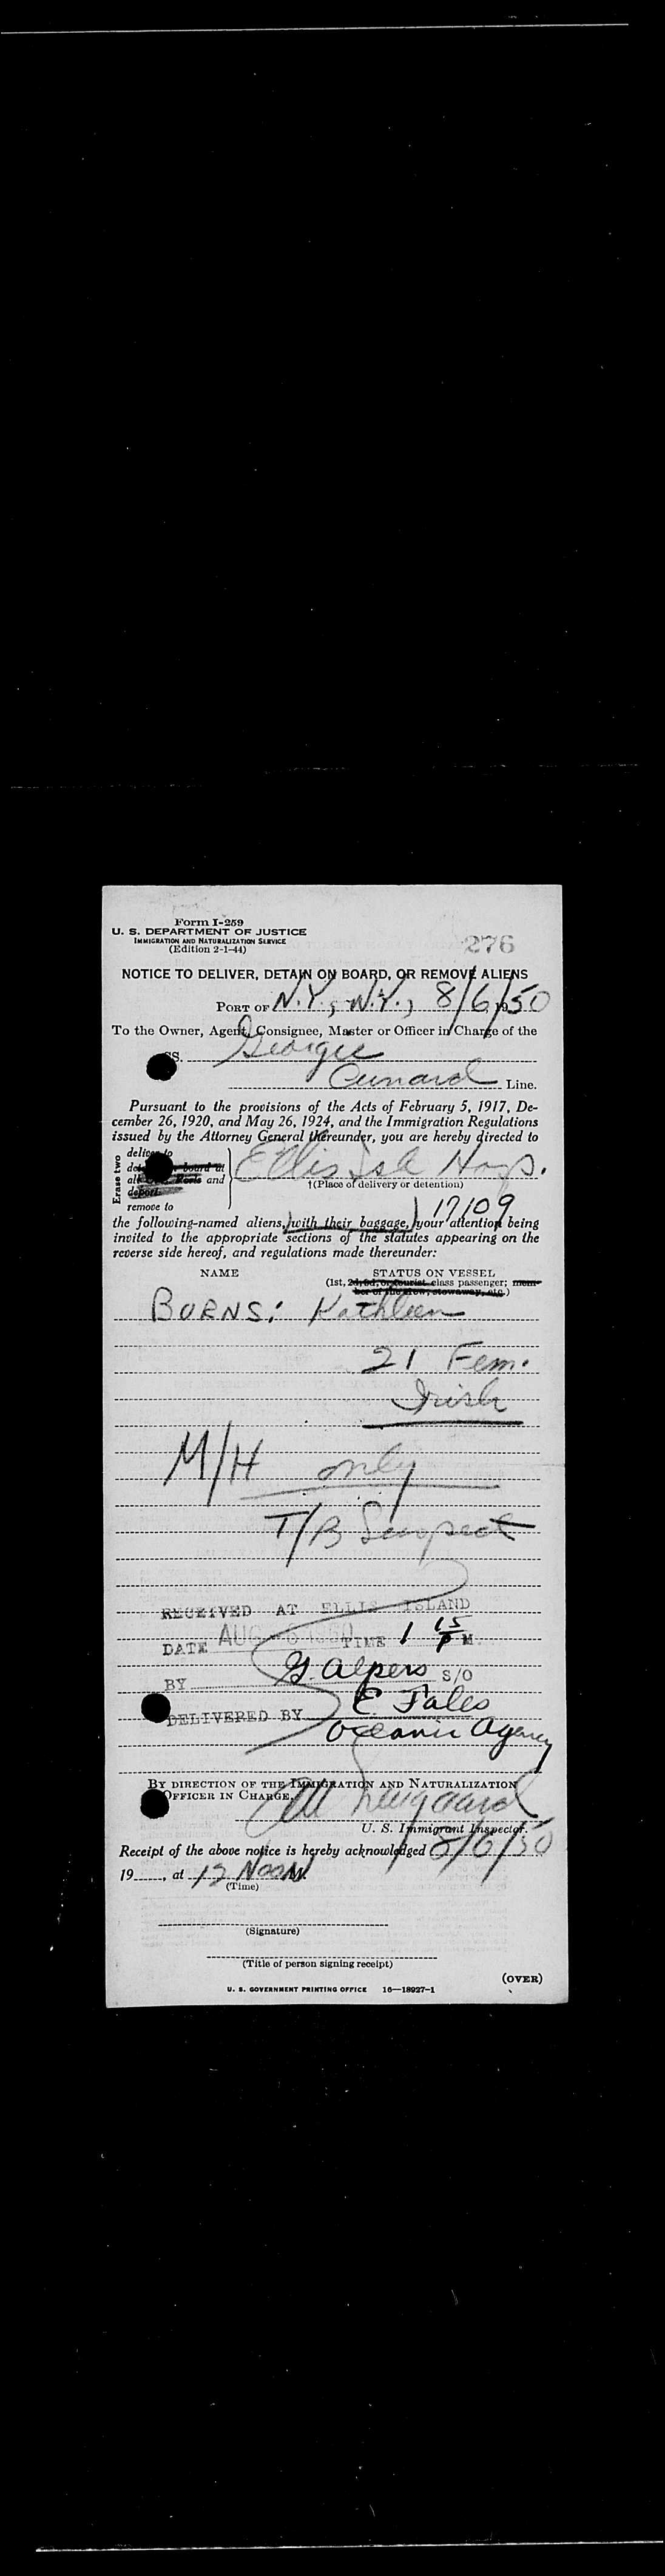 Form I-259
U. S. DEPARTMENT OF JUSTICE
IMMIGRATION AND NATURALIZATION SERVICE
(Edition 2-1-44)
276
NOTICE TO DELIVER, DETAIN ON BOARD, OR REMOVE ALIENS
PORT OF N.Y., N.Y., 8/6/50
To the Owner, Agent, Consignee, Master or Officer in Charge of the
SS. Georgic
Cunard Line.
Pursuant to the provisions of the Acts of February 5, 1917, De-
cember 26, 1920, and May 26, 1924, and the Immigration Regulations
issued by the Attorney General thereunder, you are hereby directed to
Erase two
deliver to
board at
and
deport
remove to
Ellis Isl Hosp.
†(Place of delivery or detention)
17109
the following-named aliens, (with their baggage,) your attention being
invited to the appropriate sections of the statutes appearing on the
reverse side hereof, and regulations made thereunder:
NAME STATUS ON VESSEL
(1st, 2d, 3d, or tourist class passenger; mem-
ber of the crew, stowaway, etc.)
BURNS: Kathleen
21 Fem.
Irish
M/H only
T/B Suspect
RECEIVED AT ELLIS ISLAND
DATE AUG 1950 TIME 1 15 P M.
BY G. Alpers S/O
DELIVERED BY E Fales
Oceanic Agency
BY DIRECTION OF THE IMMIGRATION AND NATURALIZATION
OFFICER IN CHARGE.
U. S. Immigrant Inspector.
Receipt of the above notice is hereby acknowledged 8/6/50
19......, at 12 Noon M.
(Time)
(Signature)
(Title of person signing receipt)
(OVER)
U. S. GOVERNMENT PRINTING OFFICE 16—18927-1